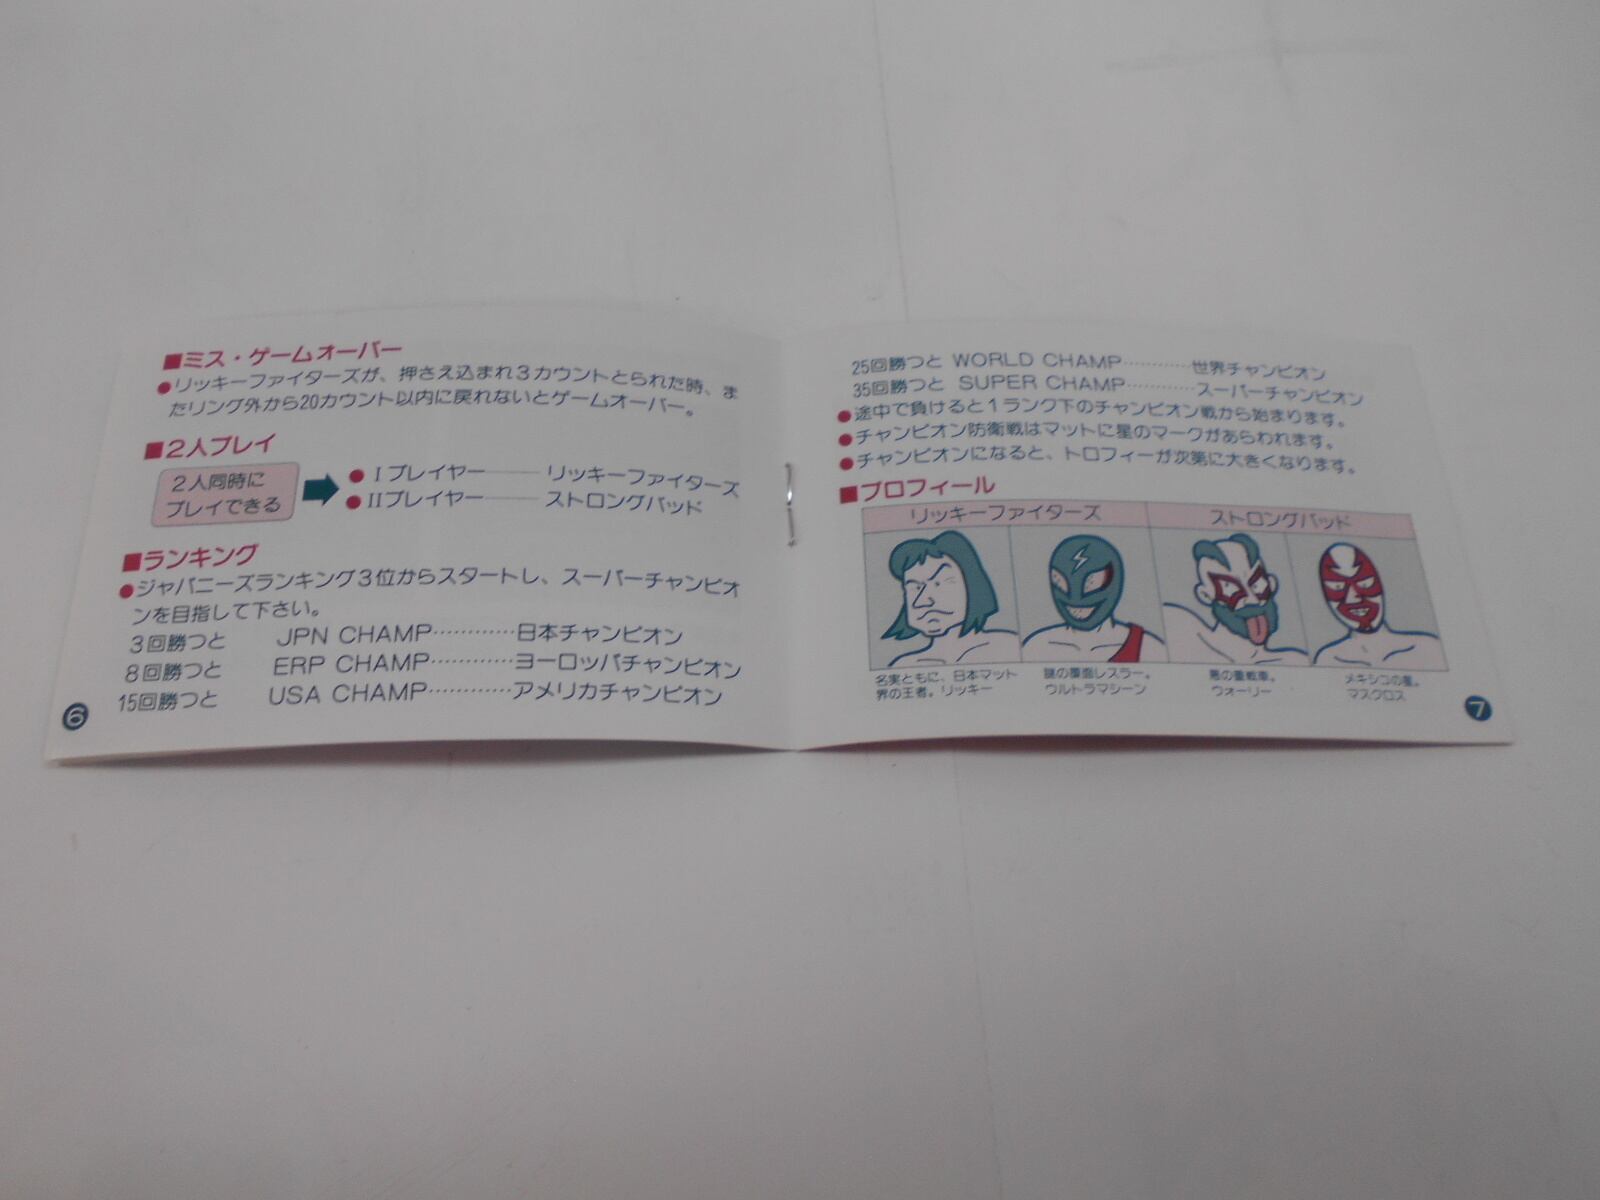 ■ミス・ゲームオーバー
●リッキーファイターズが、押さえ込まれ3カウントとられた時、ま
たリング外から20カウント以内に戻れないとゲームオーバー。
■2人プレイ
2人同時に
プレイできる
●Ⅰプレイヤー――リッキーファイターズ
●Ⅱプレイヤー――ストロングバッド
■ランキング
●ジャパニーズランキング3位からスタートし、スーパーチャンピオ
ンを目指して下さい。
3回勝つと JPN CHAMP…………日本チャンピオン
8回勝つと ERP CHAMP…………ヨーロッパチャンピオン
15回勝つと USA CHAMP…………アメリカチャンピオン
6
25回勝つと WORLD CHAMP…………世界チャンピオン
35回勝つと SUPER CHAMP…………スーパーチャンピオン
●途中で負けると1ランク下のチャンピオン戦から始まります。
●チャンピオン防衛戦はマットに星のマークがあらわれます。
●チャンピオンになると、トロフィーが次第に大きくなります。
■プロフィール
リッキーファイターズ ストロングバッド
名実ともに、日本マット
界の王者。リッキー
謎の覆面レスラー。
ウルトラマシーン
悪の重戦車。
ウォーリー
メキシコの星。
マスクロス
7